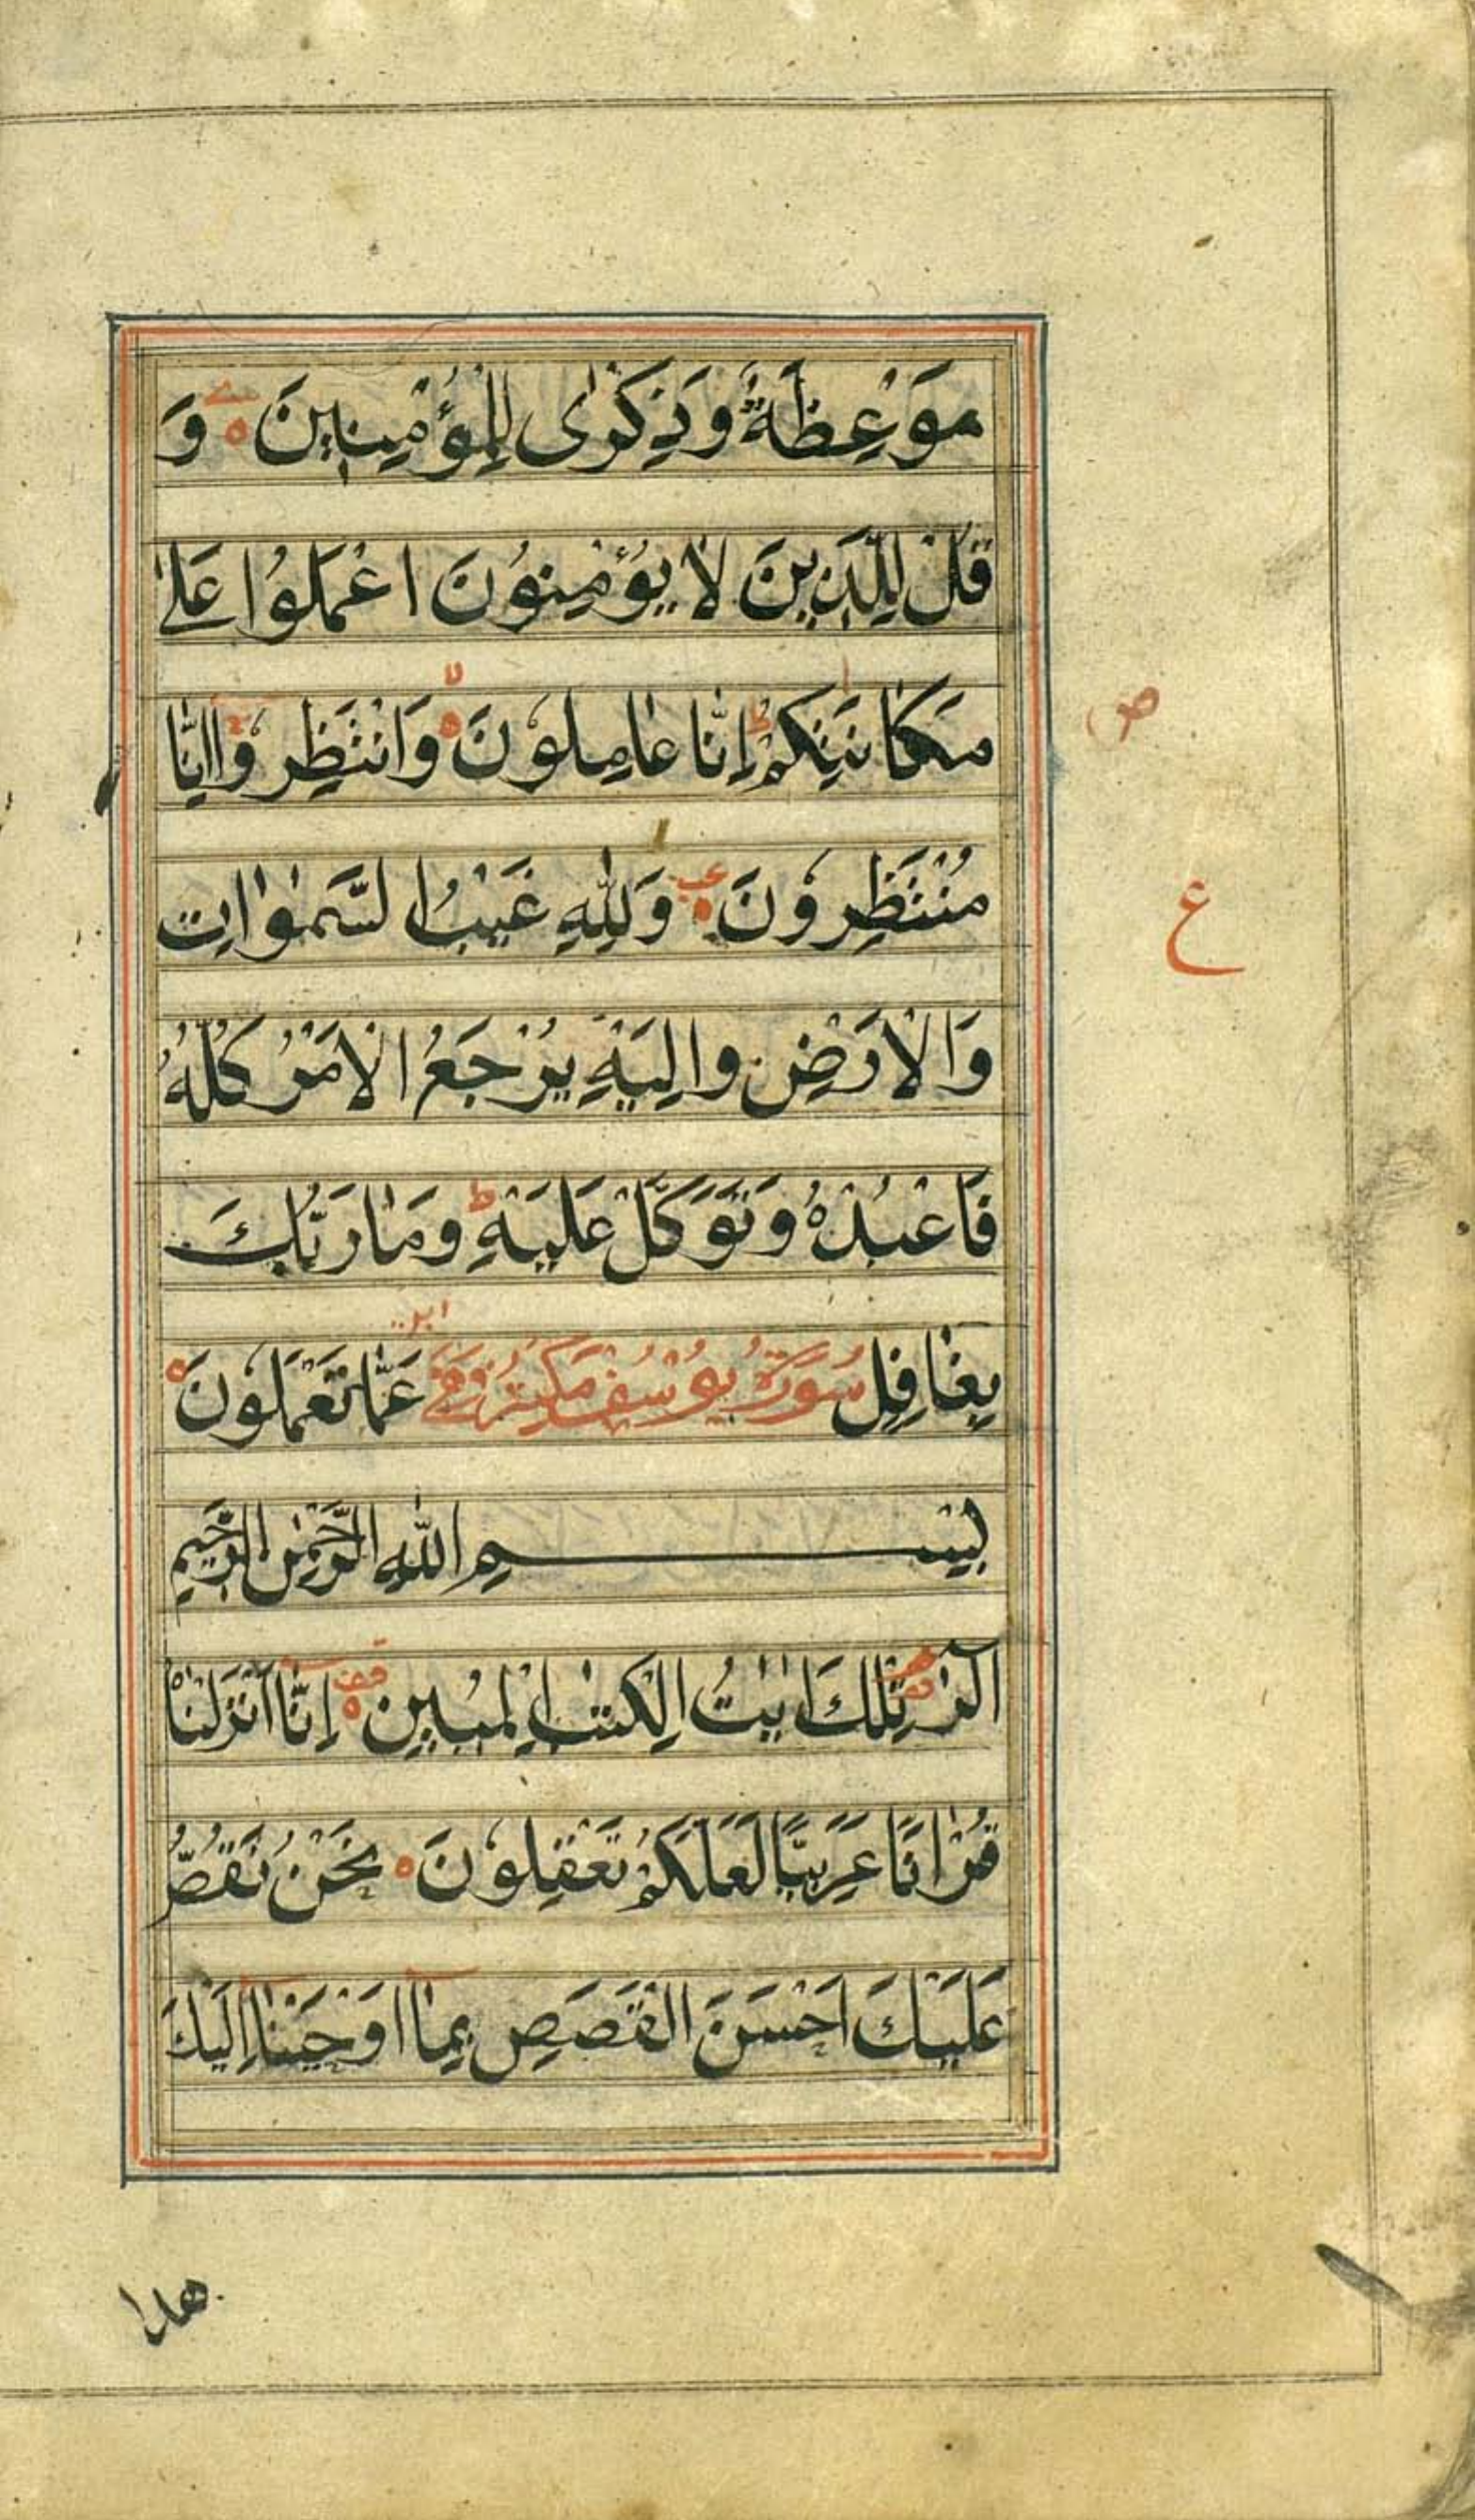 مَوْعِظَةٌ وَذِكْرٰى لِلْمُؤْمِنِينَ ه وَ
قُلْ لِلَّذِينَ لَا يُؤْمِنُونَ اعْمَلُوا عَلٰى
مَكَانَتِكُمْ ط اِنَّا عَامِلُوْنَ ه لا وَانْتَظِرُوْا اِنَّا
مُنْتَظِرُوْنَ ه وَلِلّٰهِ غَيْبُ السَّمٰوٰاتِ
وَالْاَرْضِ وَاِلَيْهِ يُرْجَعُ الْاَمْرُ كُلُّهُ
فَاعْبُدْهُ وَتَوَكَّلْ عَلَيْهِ ط وَمَا رَبُّكَ
بِغَافِلٍ عَمَّا تَعْمَلُوْنَ ه
سُوْرَةُ يُوْسُفَ مَكِّيَّةٌ وَهِيَ
بِسْمِ اللّٰهِ الرَّحْمٰنِ الرَّحِيْمِ
الٓرٰ تِلْكَ اٰيٰتُ الْكِتٰبِ الْمُبِيْنِ ه اِنَّا اَنْزَلْنٰهُ
قُرْاٰنًا عَرَبِيًّا لَعَلَّكُمْ تَعْقِلُوْنَ ه نَحْنُ نَقُصُّ
عَلَيْكَ اَحْسَنَ الْقَصَصِ بِمَآ اَوْحَيْنَآ اِلَيْكَ
هذا
ص
ع